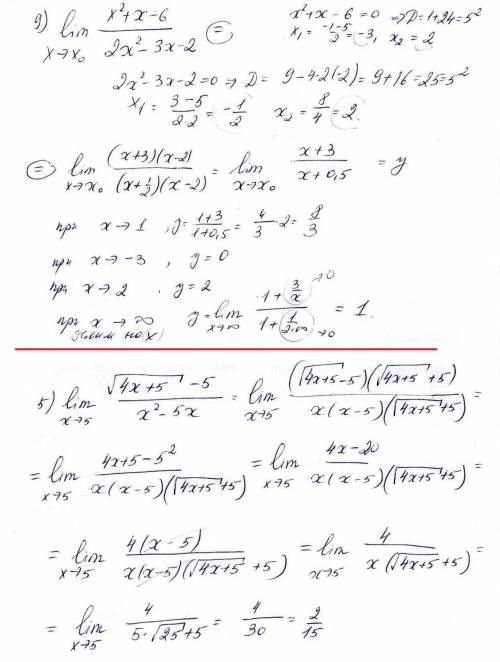 9) lim x→x₀ (x²+x-6)/(2x²-3x-2) =
x²+x-6=0 ⇒ D=1+24=5²
x₁ = (-1-5)/2 = -3, x₂ = 2
2x²-3x-2=0 ⇒ D= 9-4·2(-2)=9+16=25=5²
x₁ = (3-5)/(2·2) = -1/2 x₂ = 8/4 = 2.
= lim x→x₀ ((x+3)(x-2))/((x+1/2)(x-2)) = lim x→x₀ (x+3)/(x+0,5) = y
при x→1 , y= (1+3)/(1+0,5) = 4/3 ·2 = 8/3
при x→-3 , y=0
при x→2 , y=2
при x→∞ y= lim x→∞ (1+3/x →0)/(1+1/(2·∞) →0) = 1.
(делим на x)
5) lim x→5 (√(4x+5) -5)/(x²-5x) = lim x→5 ((√(4x+5)-5)(√(4x+5)+5))/(x(x-5)(√(4x+5)+5)) =
= lim x→5 (4x+5-5²)/(x(x-5)(√(4x+5)+5)) = lim x→5 (4x-20)/(x(x-5)(√(4x+5)+5)) =
= lim x→5 (4(x-5))/(x(x-5)(√(4x+5)+5)) = lim x→5 4/(x(√(4x+5)+5)) =
= lim x→5 4/(5·√25+5) = 4/30 = 2/15